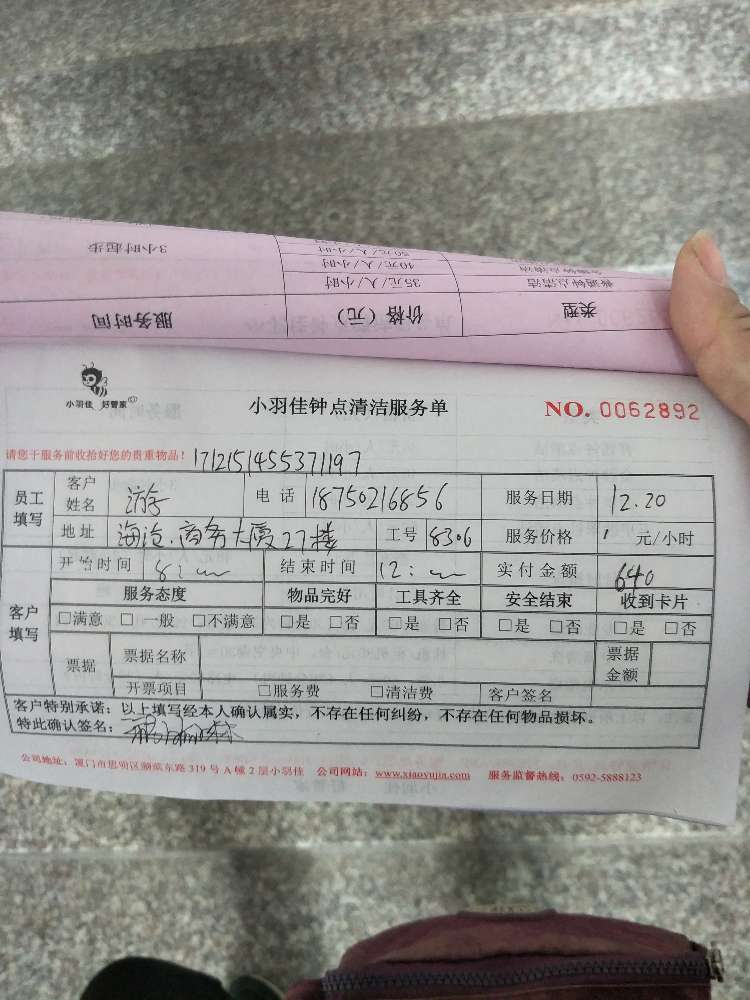 3小时起步
50元/人/小时
40元/人/小时
普通钟点清洁 35元/人/小时
类型 价格(元) 服务时间
小羽佳 好管家
小羽佳钟点清洁服务单
NO. 0062892
请您于服务前收拾好您的贵重物品! 1712151455371197
员工填写 客户姓名 电话 18750216856 服务日期 12.20
地址 海沧.商务大厦27楼 工号 8306 服务价格 元/小时
客户填写 开始时间 8: 结束时间 12: 实付金额 640
服务态度 物品完好 工具齐全 安全结束 收到卡片
□满意 □一般 □不满意 □是 □否 □是 □否 □是 □否 □是 □否
票据 票据名称 票据金额
开票项目 □服务费 □清洁费 客户签名
客户特别承诺:以上填写经本人确认属实,不存在任何纠纷,不存在任何物品损坏。
特此确认签名:
公司地址:厦门市思明区湖滨东路319号A幢2层小羽佳 公司网站:www.xiaoyujia.com 服务监督热线:0592-5888123